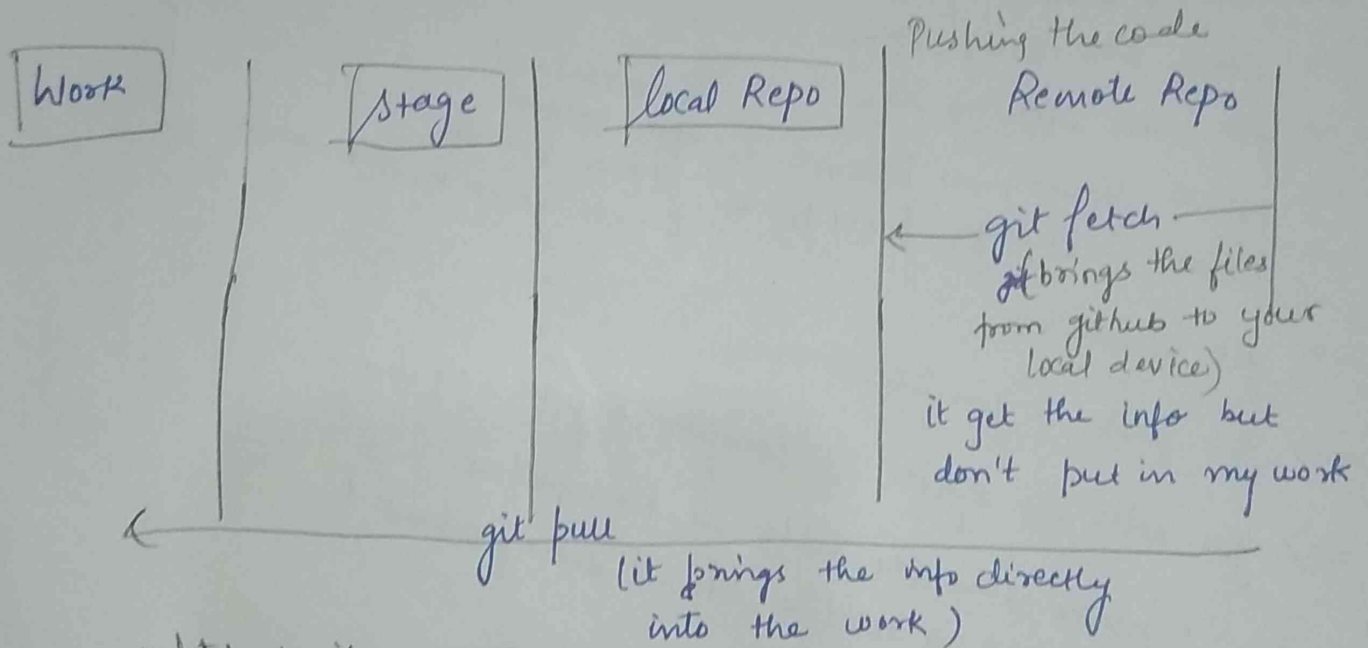 Pushing the code
Work
Stage
local Repo
Remote Repo
git fetch
brings the files
from github to your
local device)
it get the info but
don't put in my work
git pull
(it brings the info directly
into the work)